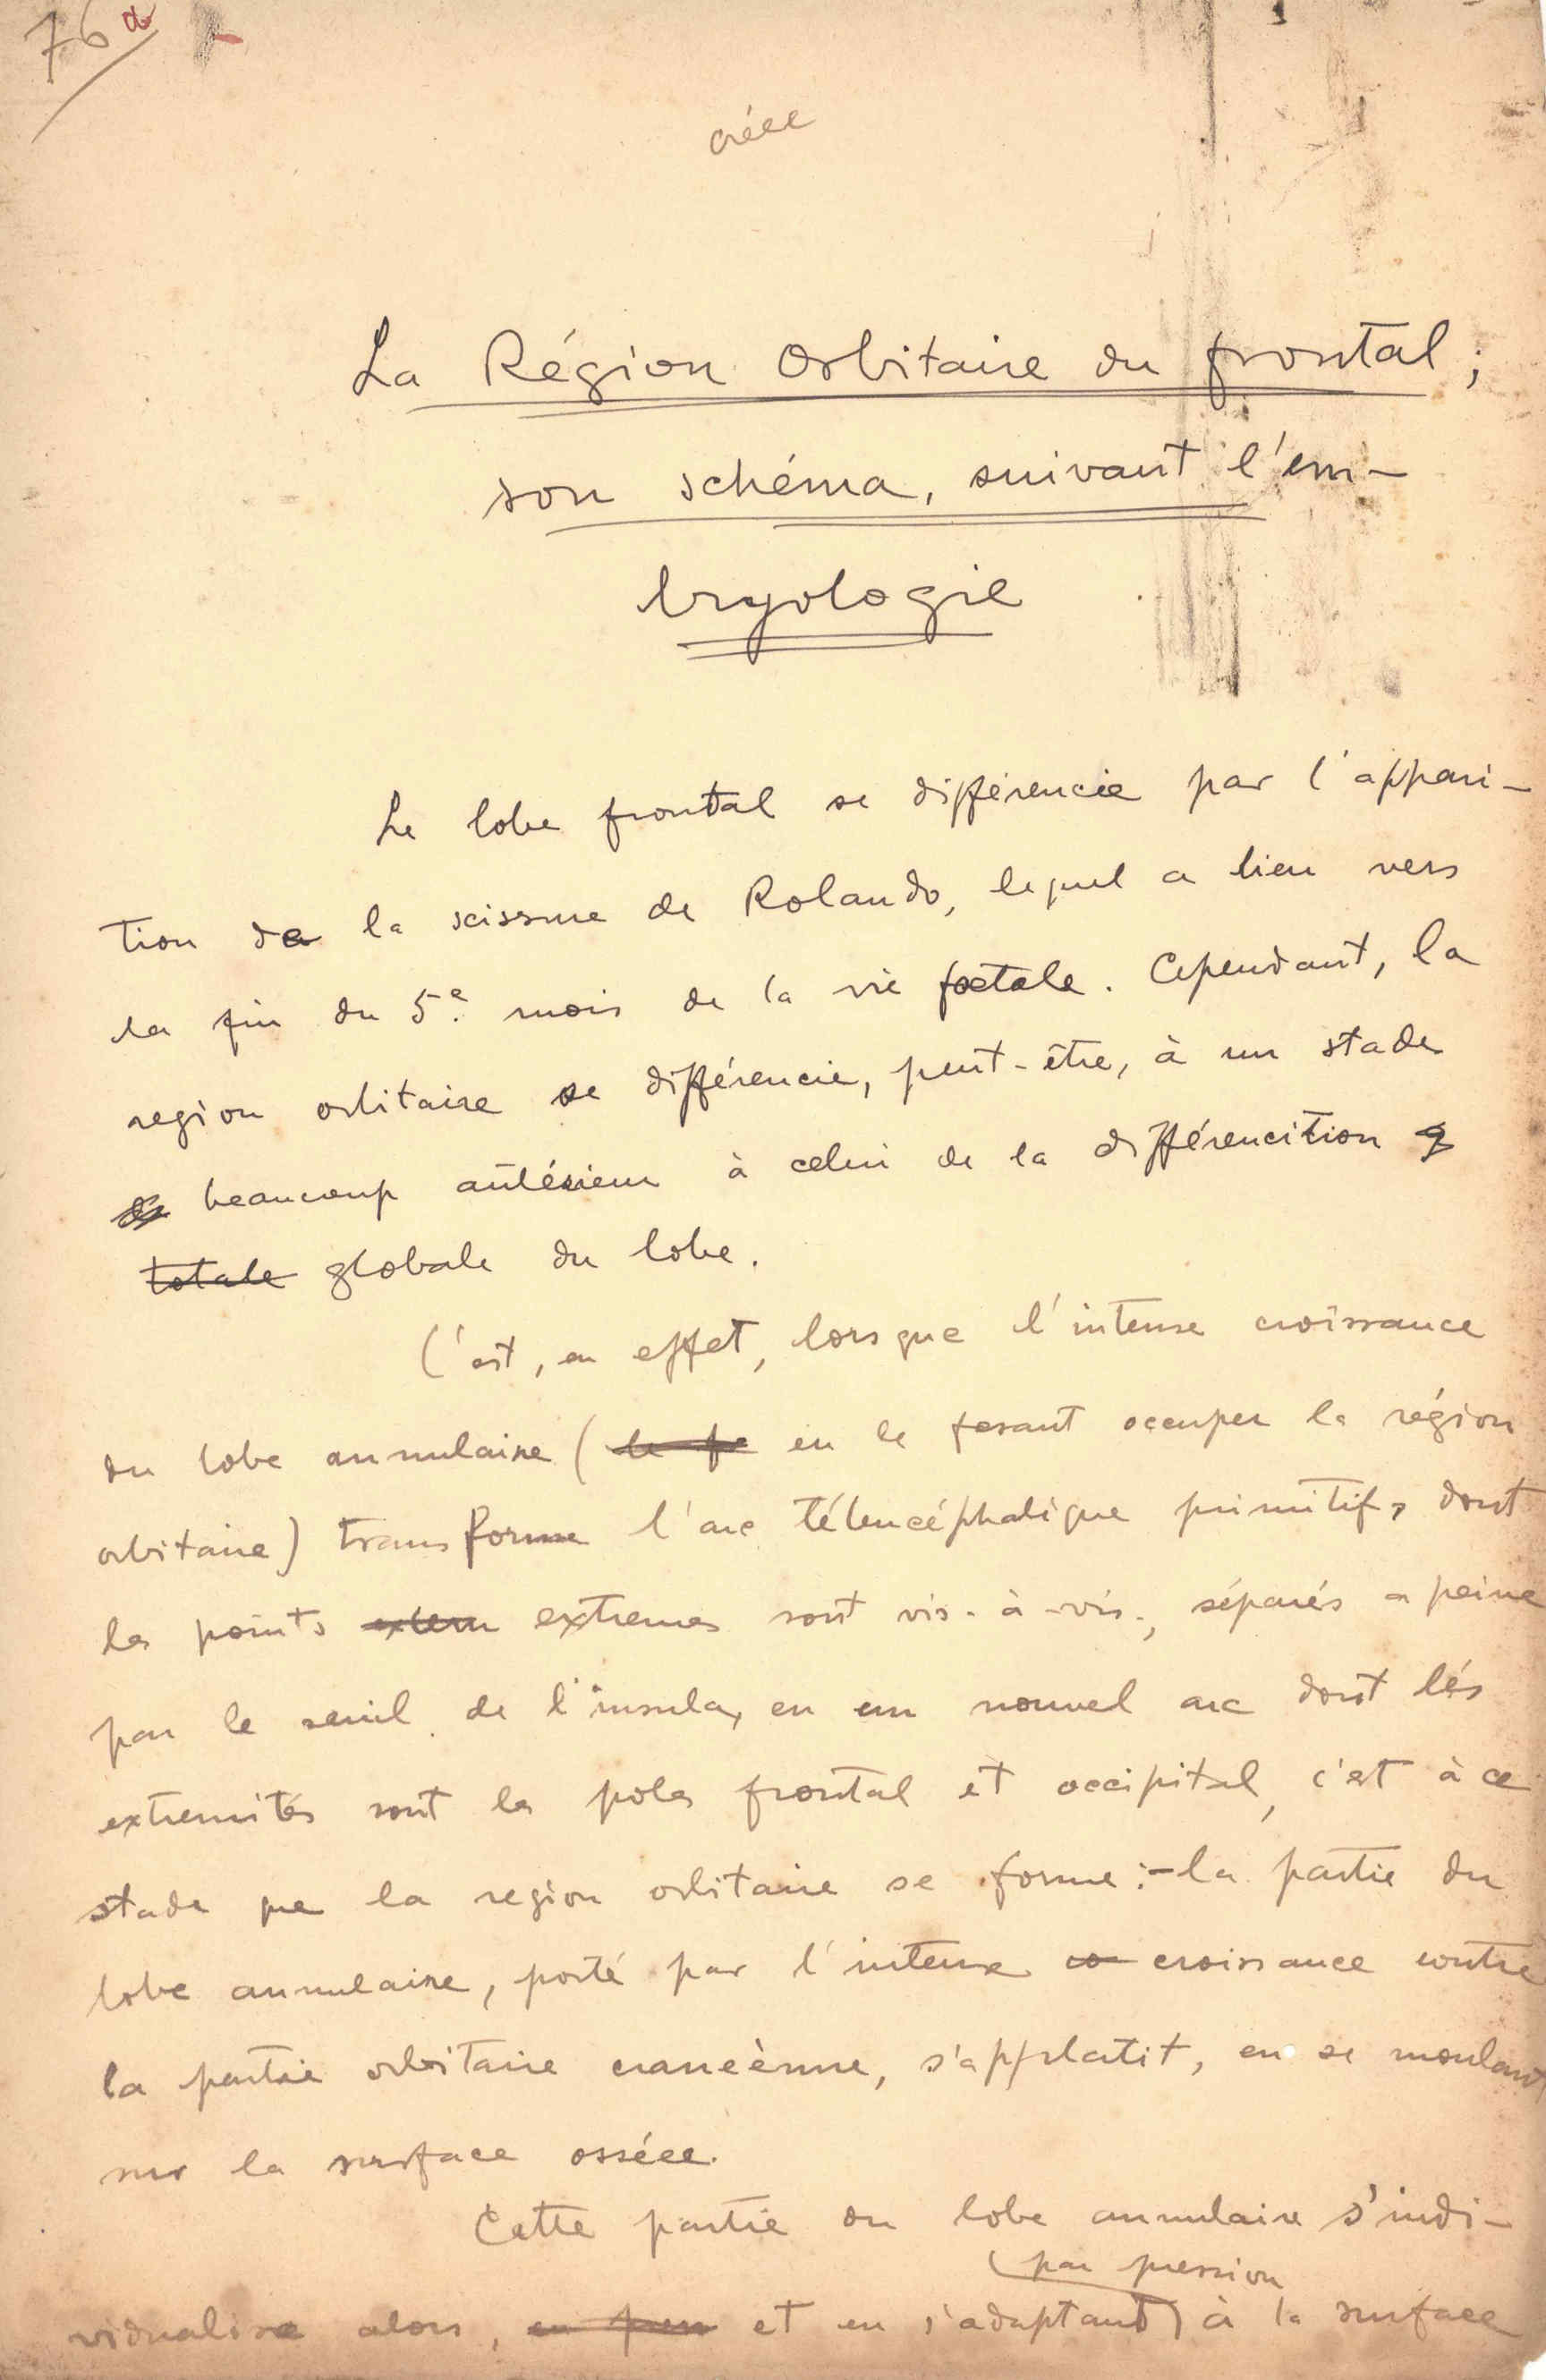 76 a
créee
La Région Orbitaire du frontal;
son schéma, suivant l'em-
bryologie
Le lobe frontal se différencie par l'appari-
tion de la scissure de Rolando, lequel a lieu vers
la fin du 5e. mois de la vie fœtale. Cependant, la
region orbitaire se différencie, peut-être, à un stade
beaucoup antérieur à celui de la différencition
totale globale du lobe.
C'est, en effet, lorsque l'intense croissance
du lobe annulaire (le fe en le fesant occuper la région
orbitaire) transforme l'arc télencéphalique primitif, dont
les points extern extremes sont vis-à-vis, séparés a peine
par le seuil de l'insula, en un nouvel arc dont lés
extremités sont les poles frontal et occipital, c'est à ce
stade que la region orbitaire se forme:-la partie du
lobe annulaire, porté par l'intense co croissance contre
la partie orbitaire craneènne, s'applatit, en se moulant
sur la surface osséee.
Cette partie du lobe annulaire s'indi-
(par pression
vidualise alors, en pren et en s'adaptant) à la surface